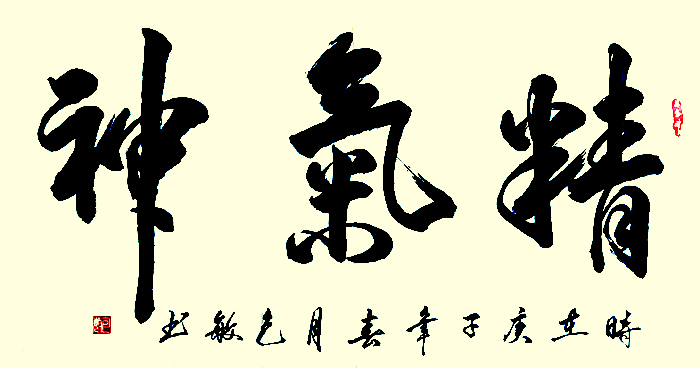 精氣神
時在庚子年春月包敏书